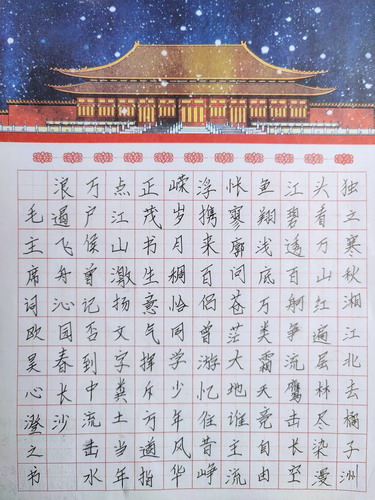 独立寒秋湘江北去橘子洲
头看万山红遍层林尽染漫
江碧透百舸争流鹰击长空
鱼翔浅底万类霜天竞自由
怅寥廓问苍茫大地谁主沉
浮携来百侣曾游忆往昔峥
嵘岁月稠恰同学少年风华
正茂书生意气挥斥方遒指
点江山激扬文字粪土当年
万户侯曾记否到中流击水
浪遏飞舟沁园春长沙
毛主席词欧昊心澄之书